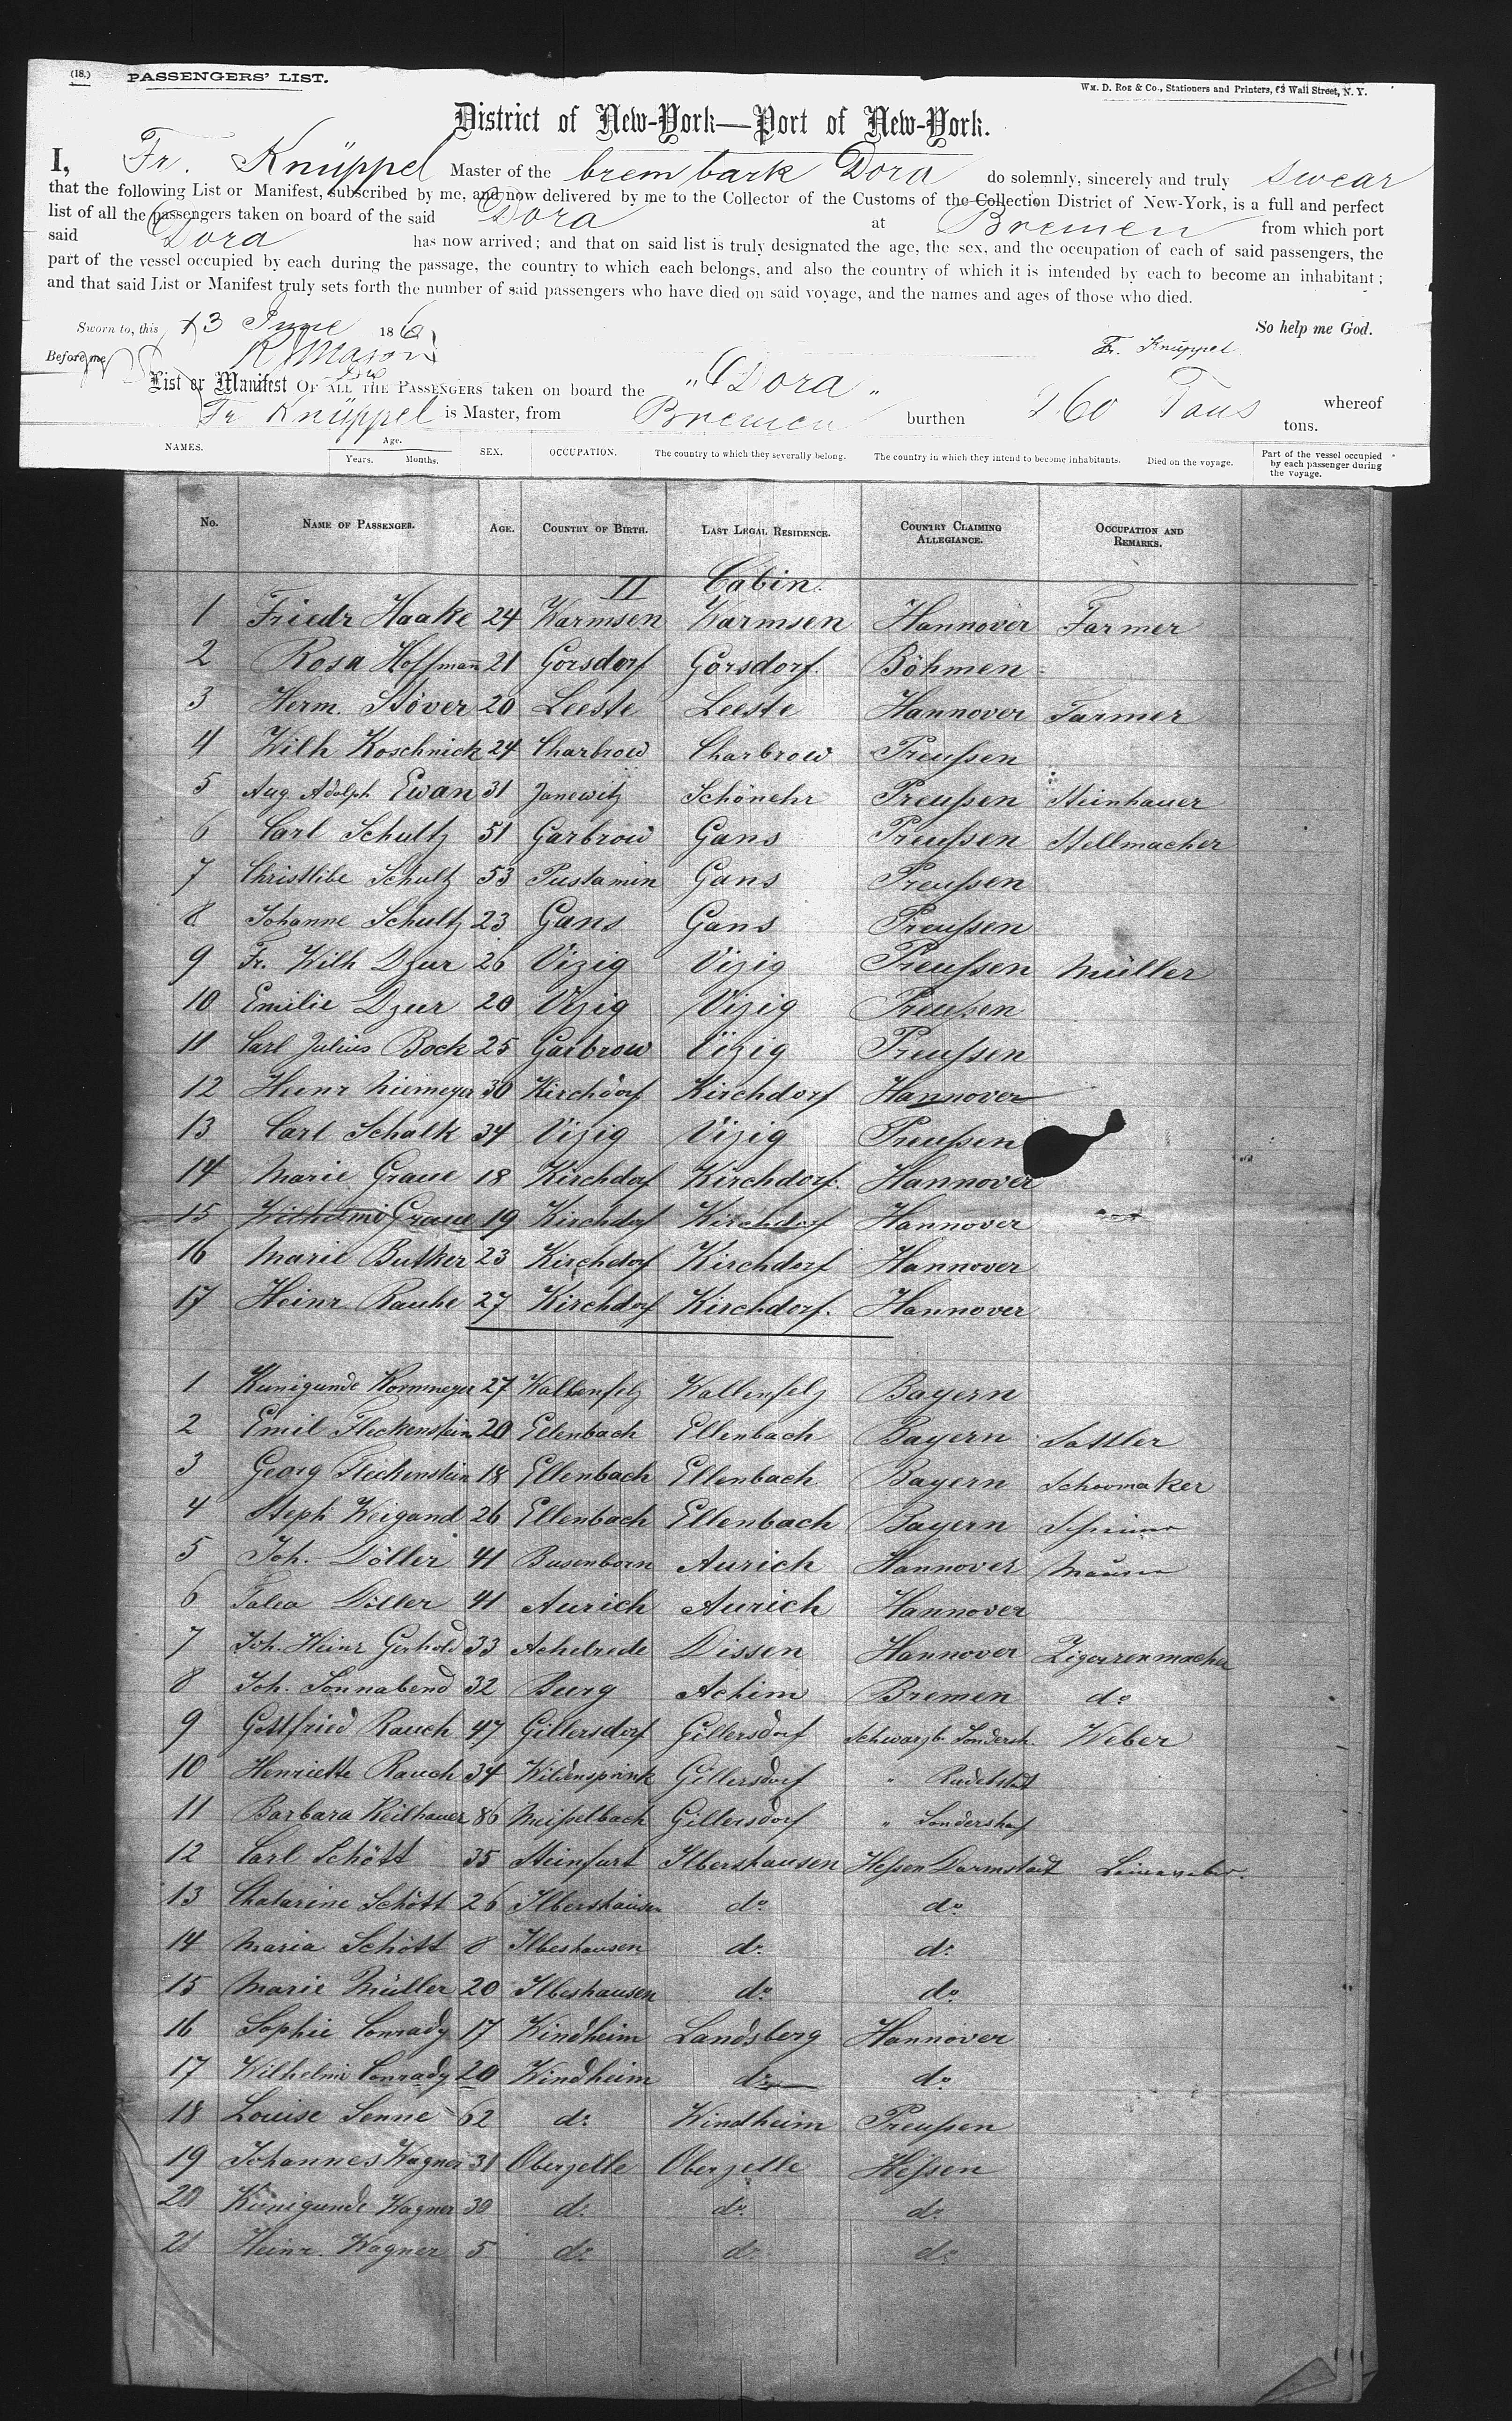 (18.) PASSENGERS' LIST.
Wm. D. Roe & Co., Stationers and Printers, 63 Wall Street, N. Y.
District of New-York—Port of New-York.
I, Fr. Knüppel Master of the brem bark Dora do solemnly, sincerely and truly swear
that the following List or Manifest, subscribed by me, and now delivered by me to the Collector of the Customs of the Collection District of New-York, is a full and perfect
list of all the passengers taken on board of the said Dora at Bremen from which port
said Dora has now arrived; and that on said list is truly designated the age, the sex, and the occupation of each of said passengers, the
part of the vessel occupied by each during the passage, the country to which each belongs, and also the country of which it is intended by each to become an inhabitant;
and that said List or Manifest truly sets forth the number of said passengers who have died on said voyage, and the names and ages of those who died.
Sworn to, this 13 June 186
So help me God.
Before me R Mason
Fr. Knüppel
List or Manifest OF ALL THE PASSENGERS taken on board the "Dora"
Fr Knüppel is Master, from Bremen burthen 60 Tons tons. whereof
NAMES. Age. Years. Months. SEX. OCCUPATION. The country to which they severally belong. The country in which they intend to become inhabitants. Died on the voyage. Part of the vessel occupied by each passenger during the voyage.
No. NAME OF PASSENGER. AGE. COUNTRY OF BIRTH. LAST LEGAL RESIDENCE. COUNTRY CLAIMING ALLEGIANCE. OCCUPATION AND REMARKS.
II Cabin.
1 Friedr Haake 24 Warmsen Warmsen Hannover Farmer
2 Rosa Hoffmann 21 Gorsdorf Gorsdorf. Böhmen
3 Herm. Stöver 20 Leeste Leeste Hannover Farmer
4 Wilh Koschnick 24 Charbrow Charbrow Preußen
5 Aug. Adolph Ewan 31 Janewitz Schönehr Preußen Steinhauer
6 Carl Schultz 51 Garbrow Gans Preußen Stellmacher
7 Christlibe Schultz 53 Pustamin Gans Preußen
8 Johanne Schultz 23 Gans Gans Preußen
9 Fr. Wilh Dzur 26 Vizig Vizig Preußen Müller
10 Emilie Dzur 20 Vizig Vizig Preußen
11 Carl Julius Bock 25 Garbrow Vizig Preußen
12 Heinr Niemeyer 30 Kirchdorf Kirchdorf Hannover
13 Carl Schalk 34 Vizig Vizig Preußen
14 Marie Graue 18 Kirchdorf Kirchdorf. Hannover
15 Wilhelmi Graue 19 Kirchdorf Kirchdorf Hannover
16 Marie Butker 23 Kirchdorf Kirchdorf Hannover
17 Heinr. Rauhe 27 Kirchdorf Kirchdorf. Hannover
1 Kunigunde Kommeyer 27 Wallenfelz Wallenfelz Bayern
2 Emil Fleckenstein 20 Ellenbach Ellenbach Bayern Sattler
3 Georg Fleckenstein 18 Ellenbach Ellenbach Bayern Schoomaker
4 Steph Weigand 26 Ellenbach Ellenbach Bayern
5 Joh. Döller 41 Busenborn Aurich Hannover
6 Talea Döller 41 Aurich Aurich Hannover
7 Joh. Heinr Gerhold 33 Achelrede Dissen Hannover Zigarrenmacher
8 Joh. Sonnabend 32 Burg Achim Bremen do
9 Gottfried Rauch 47 Gillersdorf Gillersdorf Schwarzb. Sondersh. Weber
10 Henriette Rauch 34 Wildenspnink Gillersdorf " Rudelstat
11 Barbara Keilhauer 86 Meißelbach Gillersdorf " Sondershaf
12 Carl Schött 35 Steinfurt Ilbershausen Heßen Darmstadt Leineweber.
13 Chatarine Schött 26 Ilbershausen do do
14 Maria Schött 8 Ilbeshausen do do
15 Marie Müller 20 Ilbeshausen do do
16 Sophie Conrady 17 Windheim Landsberg Hannover
17 Wilhelmi Conrady 20 Windheim do do
18 Louise Senne 62 do Windheim Preußen
19 Johannes Wagner 31 Oberzelle Oberzelle Heßen
20 Kunigunde Wagner 30 do do do
21 Heinr. Wagner 5 do do do